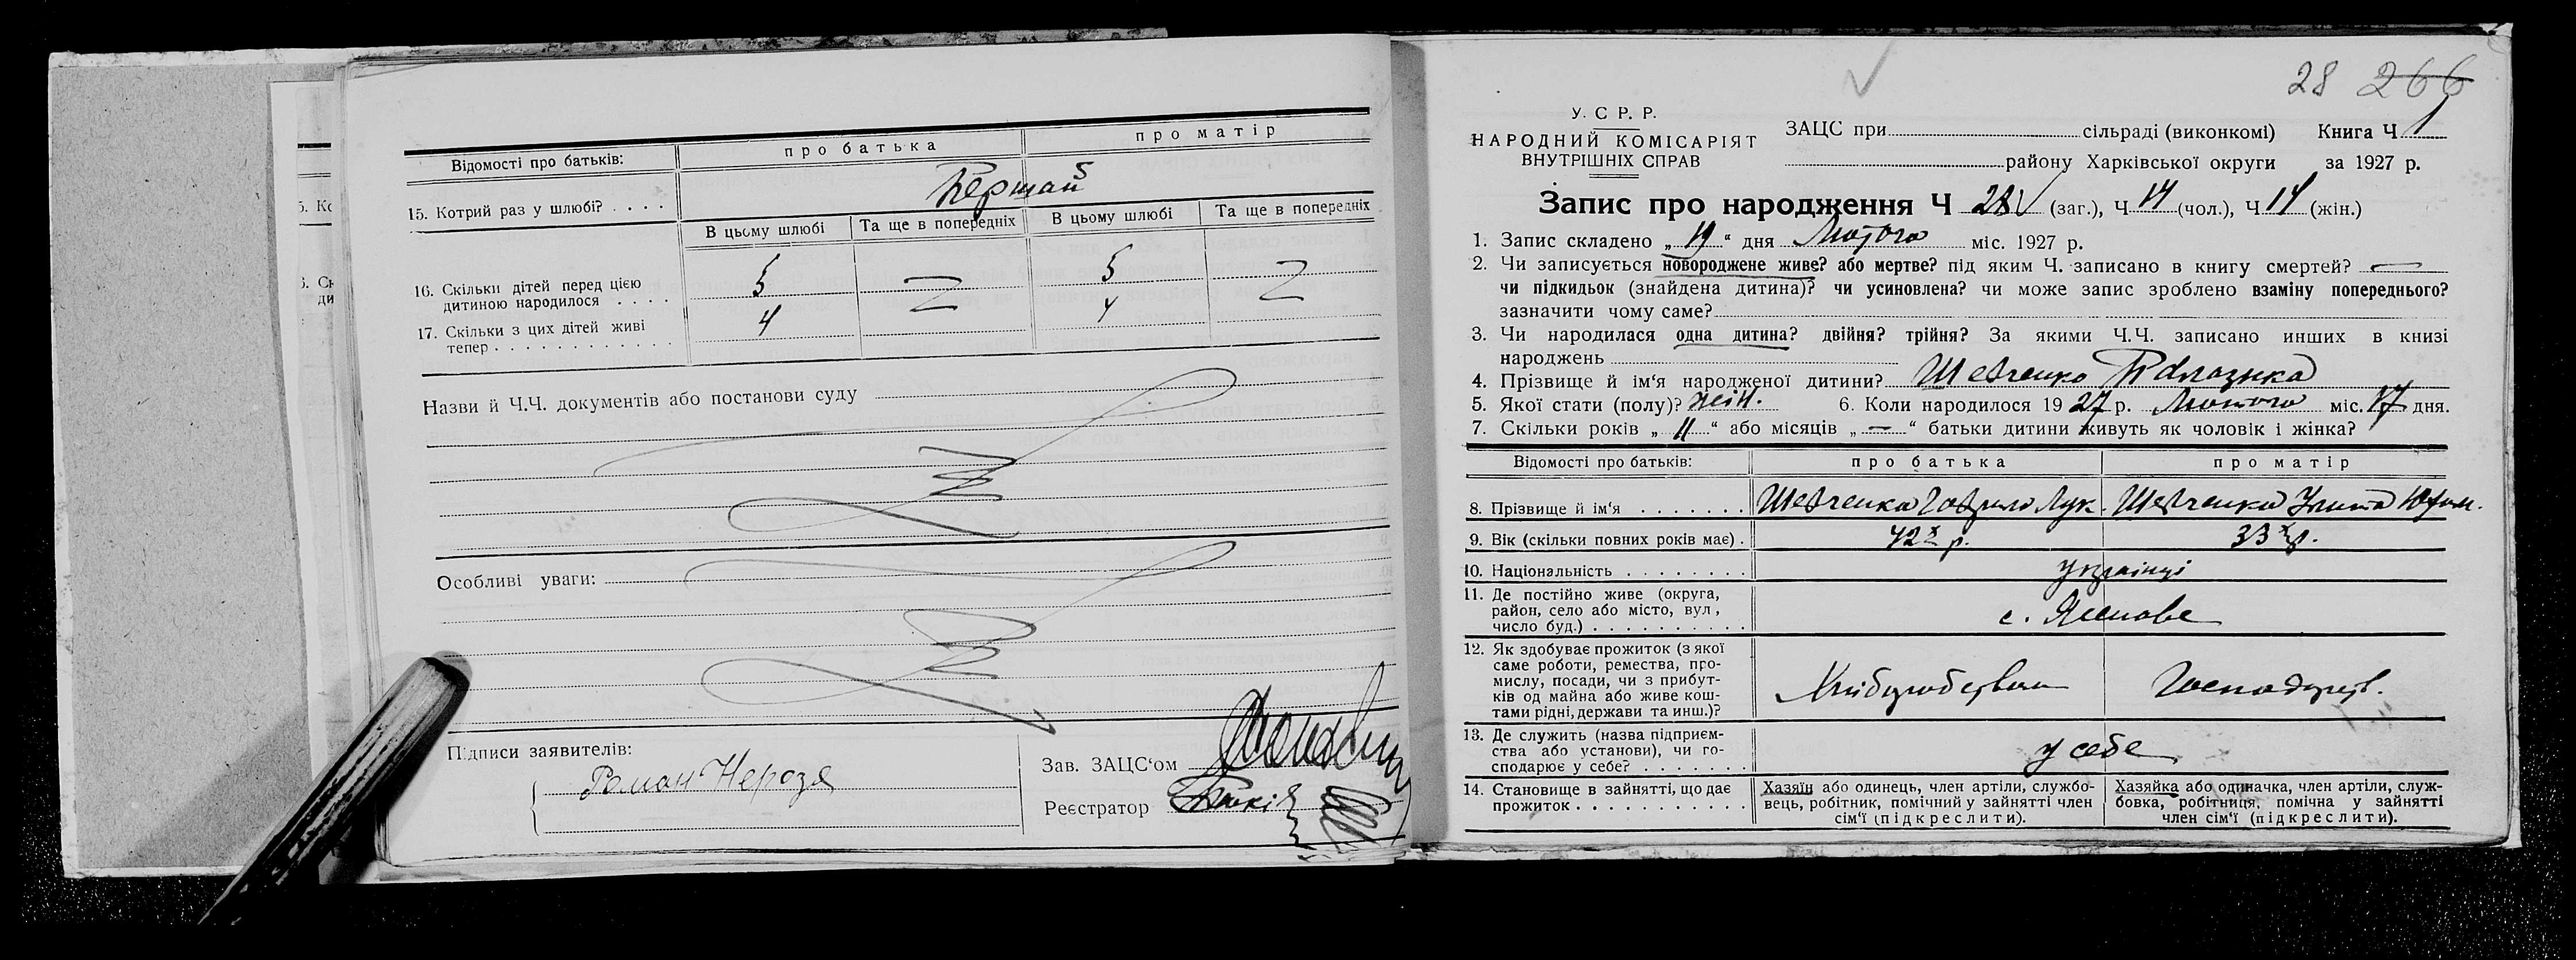 Відомості про батьків: про батька про матір
15. Котрий раз у шлюбі? . . . . Перший
В цьому шлюбі Та ще в попередніх В цьому шлюбі Та ще в попередніх
16. Скільки дітей перед цією
дитиною народилося . . . . 5 — 5 —
17. Скільки з цих дітей живі
тепер . . . . . . . . . . . . 4 — 4 —
Назви й Ч.Ч. документів або постанови суду
Особливі уваги:
Підписи заявителів:
Роман Нерозя
Зав. ЗАЦС'ом
Реєстратор
28 266
У. С. Р. Р.
НАРОДНИЙ КОМІСАРІЯТ
ВНУТРІШНІХ СПРАВ
ЗАЦС при сільраді (виконкомі) Книга Ч 1
району Харківської округи за 1927 р.
Запис про народження Ч 28 (заг.), Ч 14 (чол.), Ч 14 (жін.)
1. Запис складено „ 19 “ дня Лютого міс. 1927 р.
2. Чи записується новороджене живе? або мертве? під яким Ч. записано в книгу смертей? —
чи підкидьок (знайдена дитина)? чи усиновлена? чи може запис зроблено взаміну попереднього?
зазначити чому саме?
3. Чи народилася одна дитина? двійня? трійня? За якими Ч.Ч. записано инших в книзі
народжень
4. Прізвище й ім'я народженої дитини? Шевченко
5. Якої статі (полу)? жін. 6. Коли народилося 19 27 р. Лютого міс. 17 дня.
7. Скільки років „ 11 “ або місяців „ — “ батьки дитини живуть як чоловік і жінка?
Відомості про батьків: про батька про матір
8. Прізвище й ім'я . . . . . . . Шевченко Гаврило Лук. Шевченко Улита
9. Вік (скільки повних років має) . 42 х р. 33 х р.
10. Національність . . . . . . . . українці
11. Де постійно живе (округа,
район, село або місто, вул.,
число буд.) . . . . . . . . . . с.
12. Як здобуває прожиток (з якої
саме роботи, ремества, про-
мислу, посади, чи з прибут-
ків од майна або живе кош-
тами рідні, держави та инш.)? Хліборобством Господарств.
13. Де служить (назва підприєм-
ства або установи), чи го-
сподарює у себе? . . . . . . . у себе
14. Становище в зайнятті, що дає
прожиток . . . . . . . . . . .
Хазяїн або одинець, член артіли, службо-
вець, робітник, помічний у зайнятті член
сім'ї (підкреслити).
Хазяйка або одиначка, член артіли, служ-
бовка, робітниця, помічна у зайнятті
член сім'ї (підкреслити).